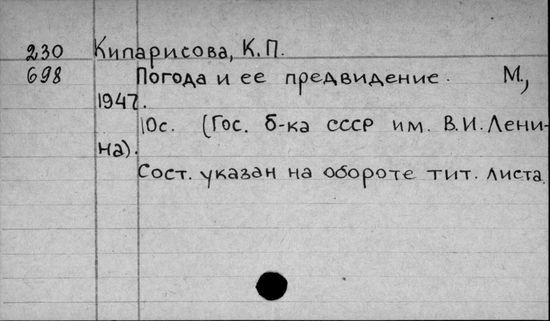 230 Кипарисова, К.П.
698 Погода и ее предвидение. М.,
1947.
10с. (Гос. б-ка СССР им. В.И.Лени-
на).
Сост. указан на обороте тит. листа.